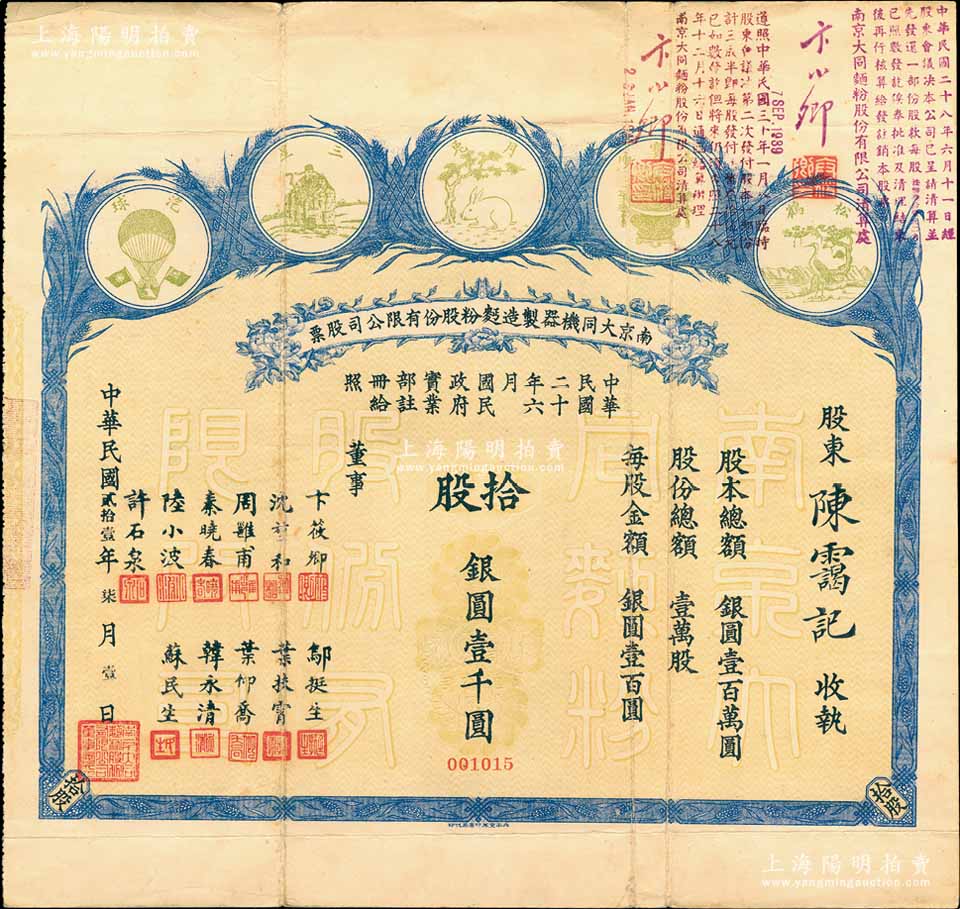 上海陽明拍賣
www.yangmingauction.com
中華民國二十八年六月十一日經
股東會議决本公司已呈請清算並
先發還一部份股款每股
已照數發訖俟奉批准及清況結束
後再行核算給發註銷本股票
南京大同麵粉股份有限公司清算處
卞小卿
7 SEP. 1939
遵照中華民國三十年一月八日臨時
股東會議决第二次發付股本
計三成半即每股發付
已如數發訖但將來仍
年十二月十六日通
南京大同麵粉股份有限公司清算處
卞小卿
松鶴
月兔
三星
汽球
南京大同機器製造麵粉股份有限公司股票
中華民國二十六年月國民政府實業部註冊給照
股東 陳靄記 收執
股本總額 銀圓壹百萬圓
股份總額 壹萬股
每股金額 銀圓壹百圓
拾股
銀圓壹千圓
001015
董事
卞筱卿 鄔挺生
葉扶霄
周雞甫 葉仰喬
秦曉春 韓永清
陸小波 蘇民生
許石泉
中華民國貳拾壹年柒月壹日
南京大同麵粉
股份有限
拾股
拾股
上海陽明拍賣
www.yangmingauction.com
上海陽明拍賣
www.yangmingauction.com